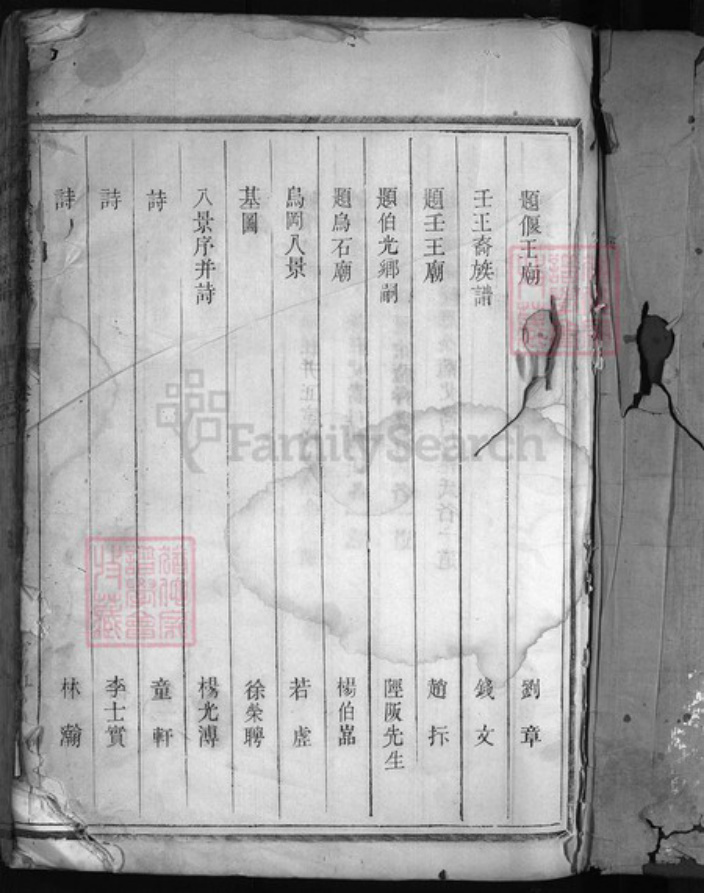 題偃王廟 劉章
壬王裔族譜 錢文
題壬王廟 趙抃
題伯光鄉嗣 陘阪先生
題烏石廟 楊伯嵓
烏岡八景 若虛
基圖 徐榮聘
八景序并詩 楊光溥
詩 童軒
詩 李士實
詩 林瀚
FamilySearch